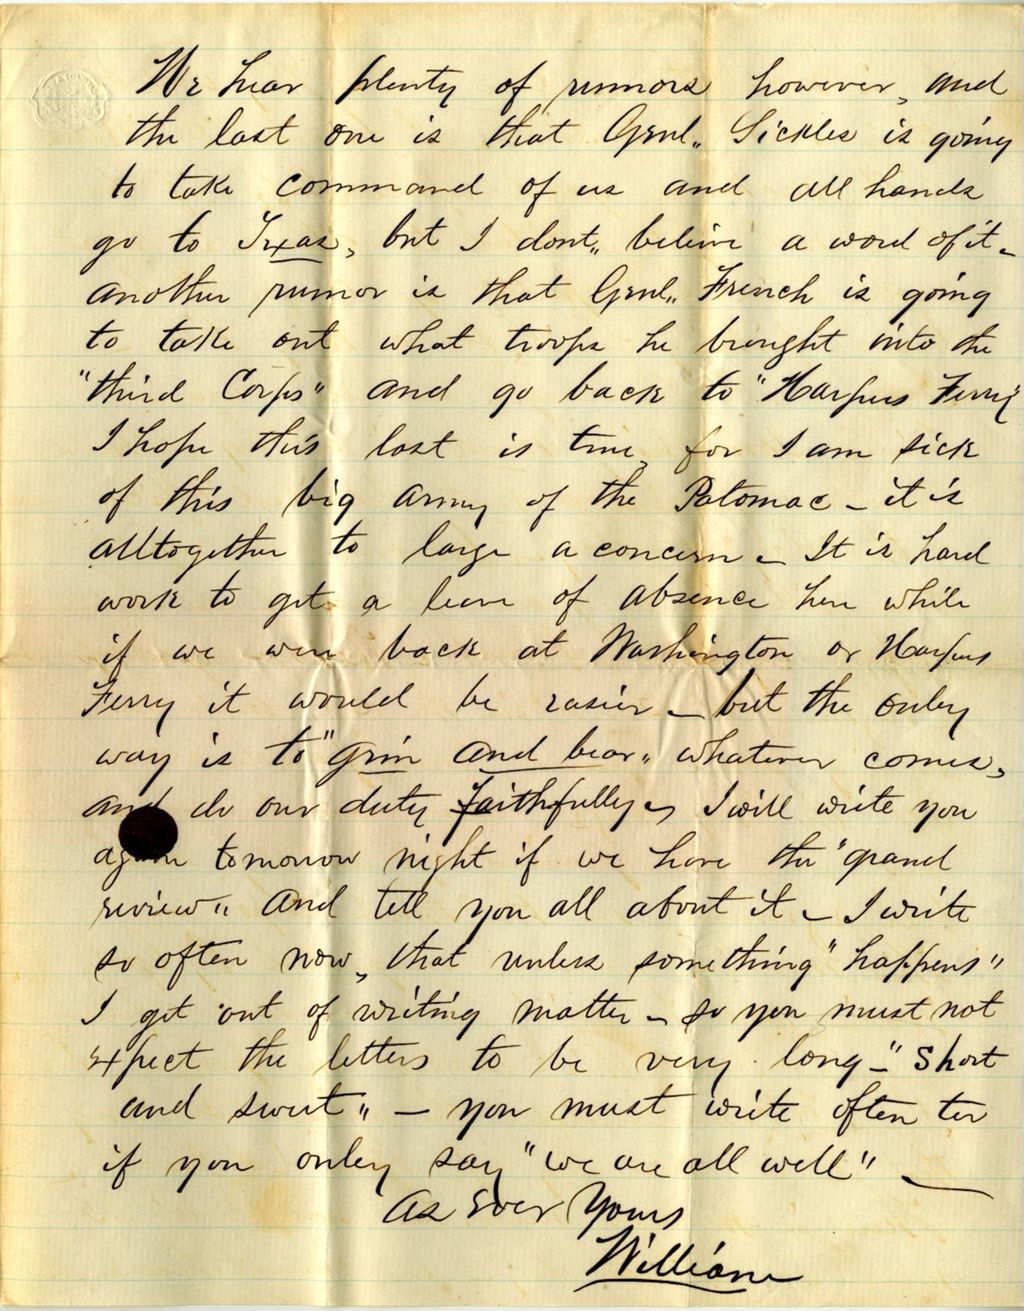 We hear plenty of rumors however, and
the last one is that Genl,, Sickles is going
to take command of us and all hands
go to Texas, but I dont,, believe a word of it –
another rumor is that Genl,, French is going
to take out what troops he brought into the
"third Corps" and go back to "Harpers Ferry"
I hope this last is true, for I am sick
of this big army of the Potomac – it is
alltogether to large a concern – It is hard
work to get a leave of absence here while
if we were back at Washington or Harpers
Ferry it would be easier – but the onley
way is to "grin and bear,, whatever comes,
and do our duty faithfully – I will write you
again tomorrow night if we have the "grand
review,, and tell you all about it – I write
so often now, that unless something "happens"
I get out of writing matter – so you must not
expect the letters to be very long – "short
and sweet,, – you must write often to
if you onley say "we are all well" –
As Ever Yours
William